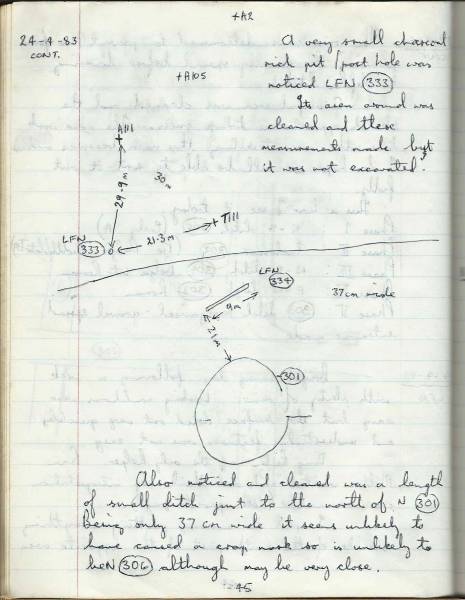 +A2
24-4-83
CONT.
A very small charcoal
rich pit / post hole was
noticed LFN 333
+A105
Its area around was
cleaned and these
measurements made but
it was not excavated.
A111
+
29.9m
30m
+T111
21.3m
LFN
333
LFN
334
37cm wide
9m
21m
301
Also noticed and cleaned was a length
of small ditch just to the north of N 301
Being only 37 cm wide it seems unlikely to
have caused a crop mark so is unlikely to
be N 306 although may be very close.
45